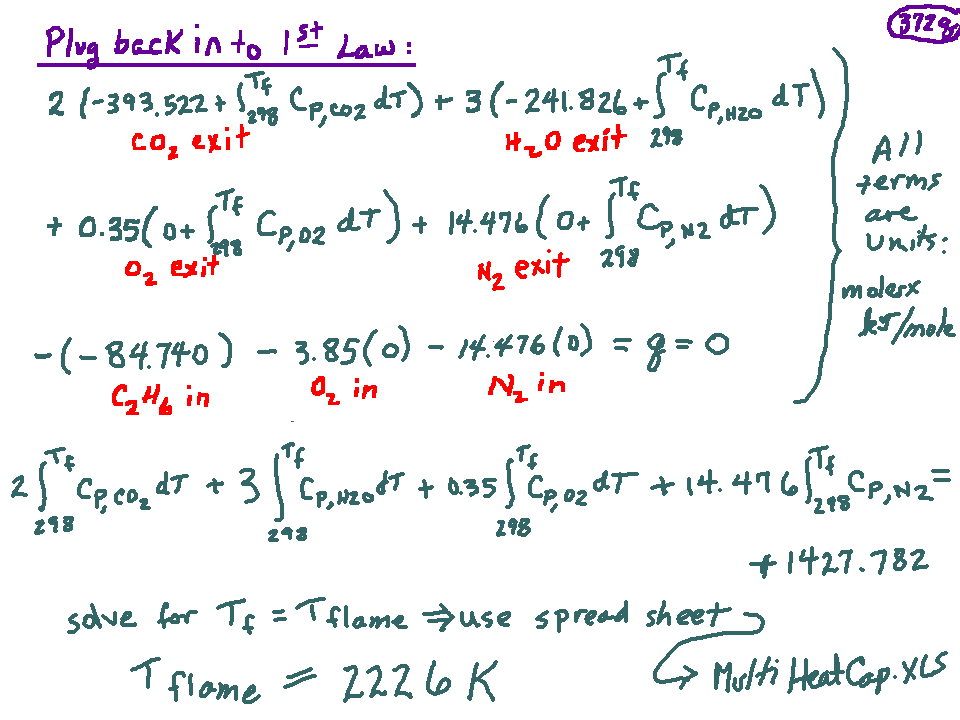 372g
Plug back in to 1st Law:
2 (-393.522 + ∫_298^Tf C_P,CO2 dT) + 3(-241.826 + ∫_298^Tf C_P,H2O dT)
CO2 exit H2O exit
+ 0.35(0+ ∫_298^Tf C_P,O2 dT) + 14.476 (0+ ∫_298^Tf C_P,N2 dT)
O2 exit N2 exit
-(-84.740) - 3.85(0) - 14.476(0) = q = 0
C2H6 in O2 in N2 in
All
terms
are
Units:
molerx
kJ/mole
2 ∫_298^Tf C_P,CO2 dT + 3 ∫_298^Tf C_P,H2O dT + 0.35 ∫_298^Tf C_P,O2 dT + 14.476 ∫_298^Tf C_P,N2 =
+1427.782
solve for Tf = Tflame ⇒ use spread sheet
Tflame = 2226 K → Multi HeatCap.XLS